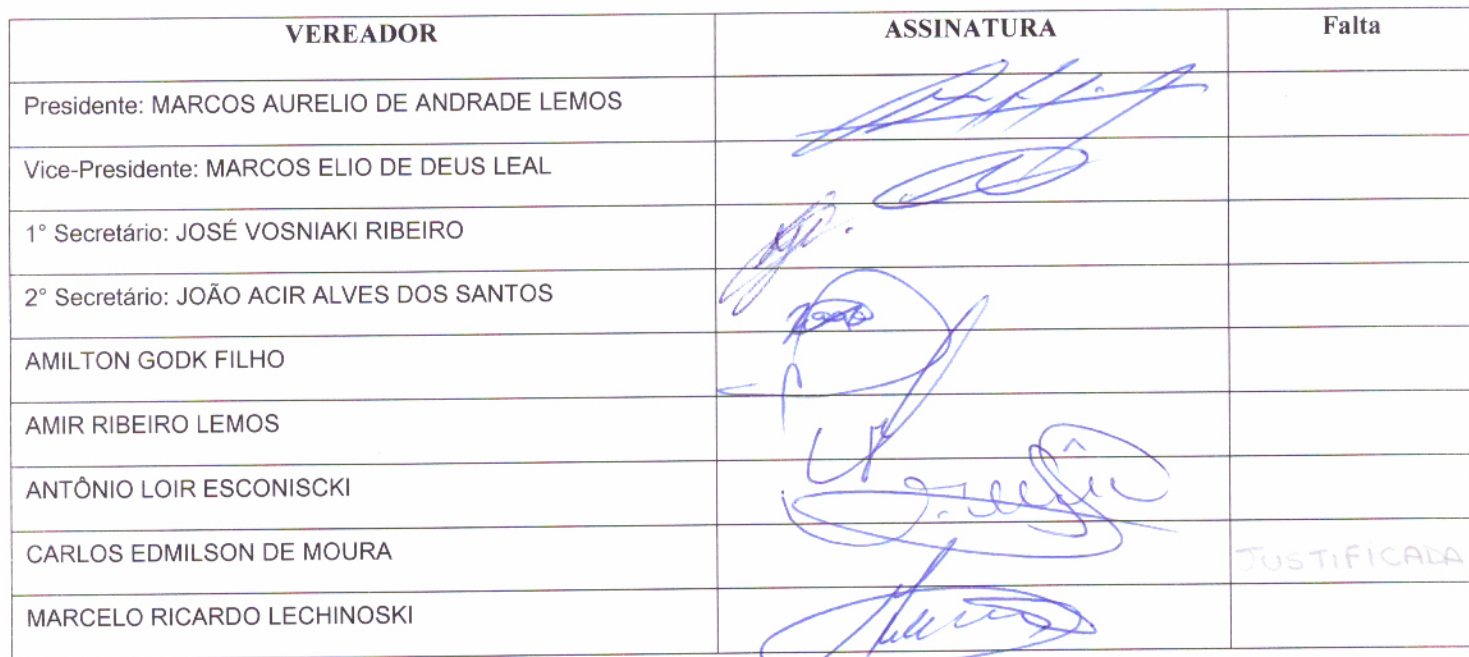 VEREADOR ASSINATURA Falta
Presidente: MARCOS AURELIO DE ANDRADE LEMOS
Vice-Presidente: MARCOS ELIO DE DEUS LEAL
1° Secretário: JOSÉ VOSNIAKI RIBEIRO
2° Secretário: JOÃO ACIR ALVES DOS SANTOS
AMILTON GODK FILHO
AMIR RIBEIRO LEMOS
ANTÔNIO LOIR ESCONISCKI
CARLOS EDMILSON DE MOURA JUSTIFICADA
MARCELO RICARDO LECHINOSKI